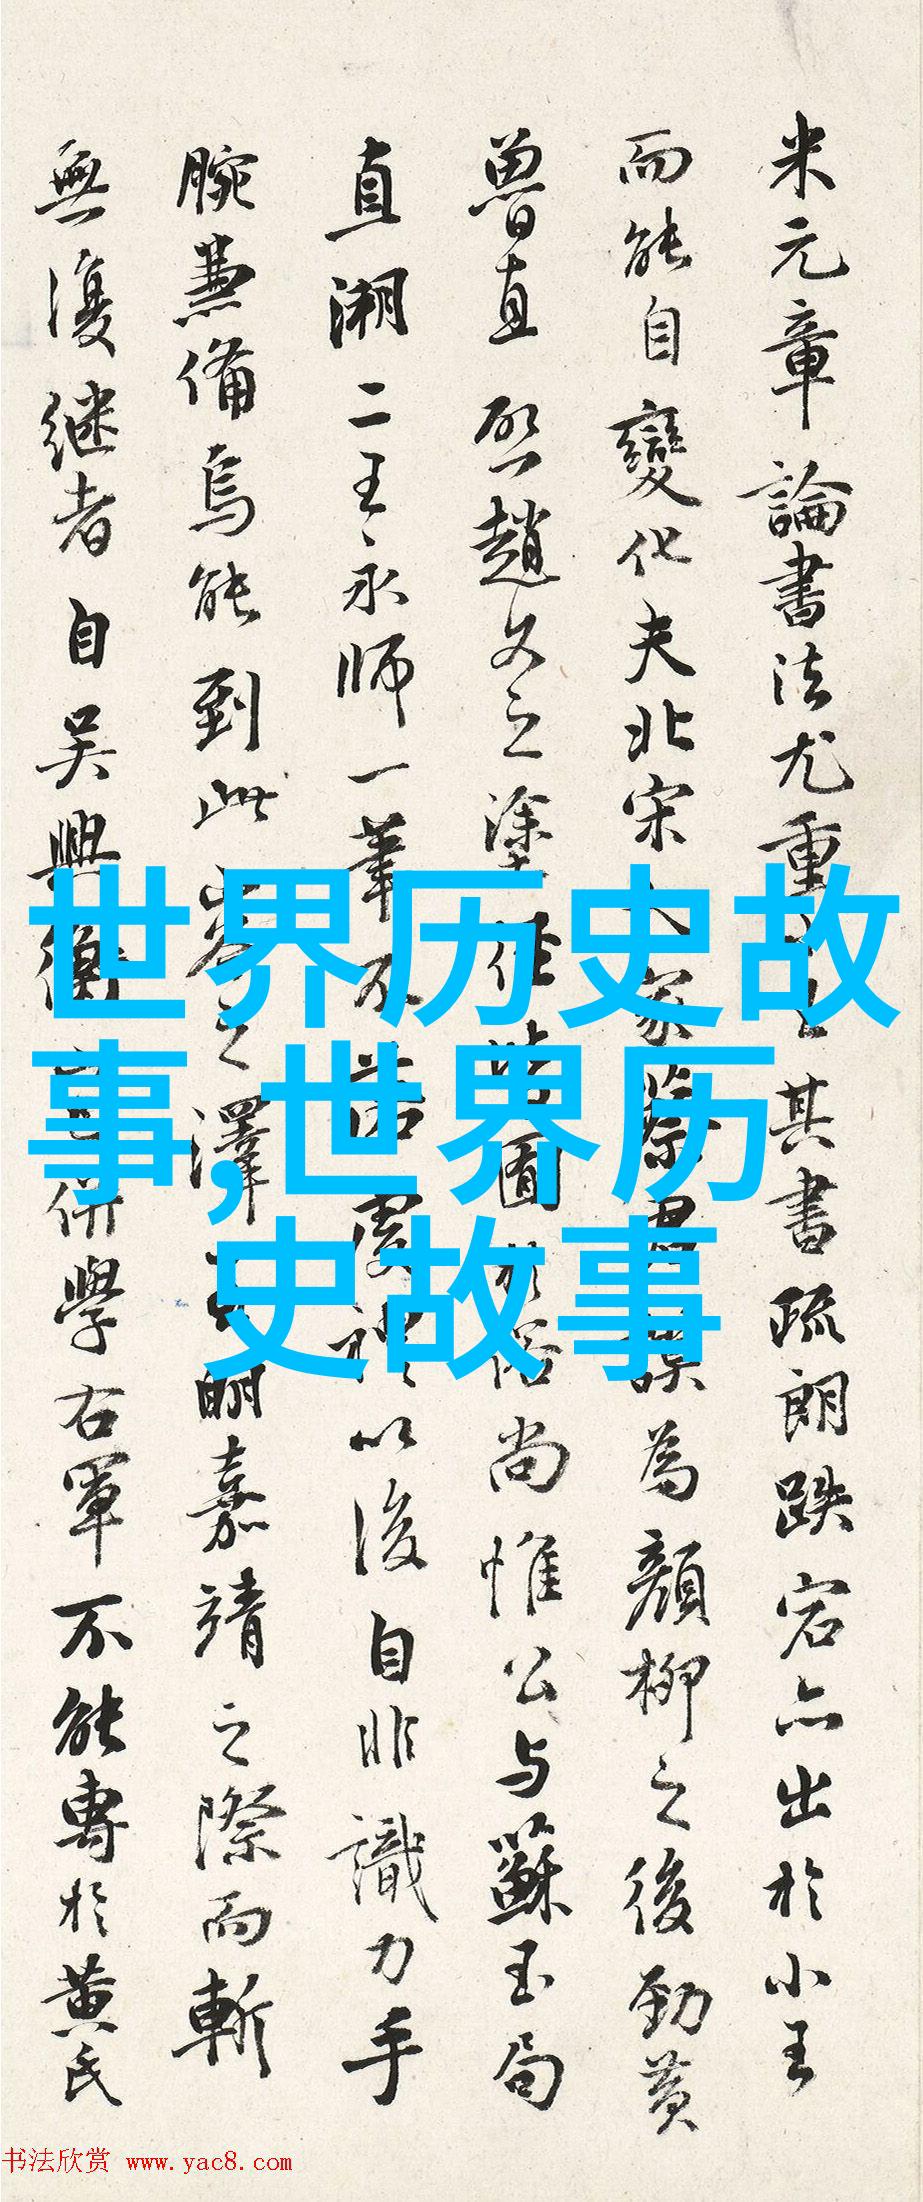 米元章論書法尤重其書疏朗跌宕亦出於小王
而能自變化夫北宋家蔡為顏柳之後勁黃
魯直趙文之塗圖俗尚惟公与蘇玉局
直溯二王永師一筆不以後自非識力手
腕兼備烏能到此之澤明嘉靖之際而斬
無復継者自吳興衡併學右軍不能專於黃氏
世界历史故
事,世界历
史故事
书法欣赏 www.yac8.com